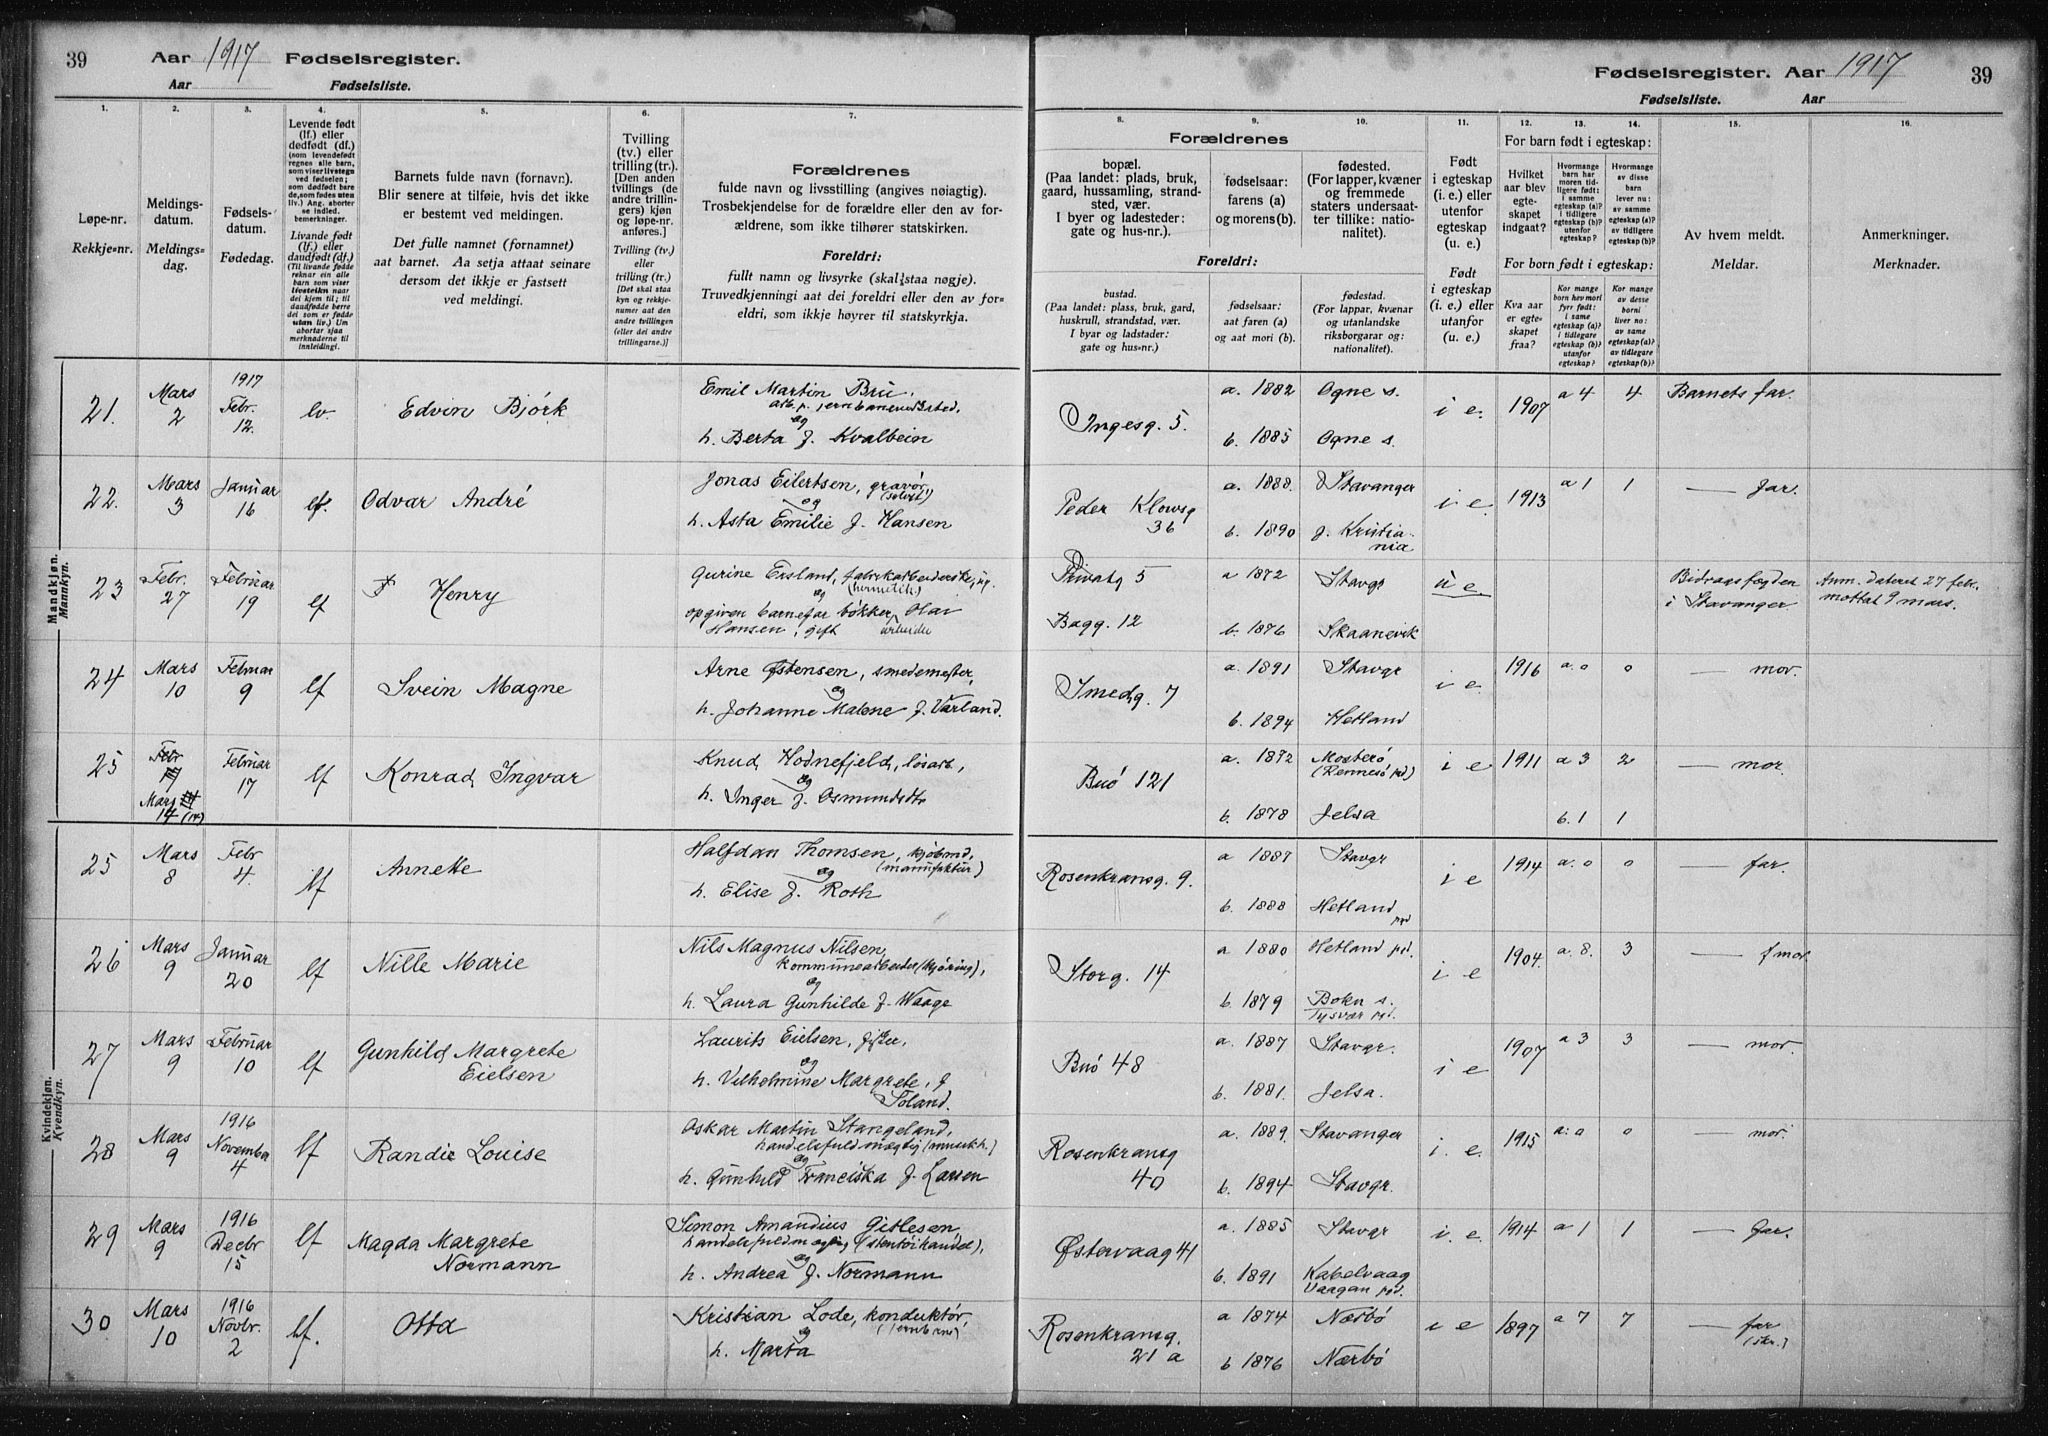 39 Aar 1917 Fødselsregister.
Aar Fødselsliste.
Fødselsregister. Aar 1917 39
Fødselsliste. Aar
1. 2. 3. 4. 5. 6. 7.
8. 9. 10. 11. 12. 13. 14. 15. 16.
Løpe-nr.
Rekkje-nr.
Meldings-
datum.
Meldings-
dag.
Fødsels-
datum.
Fødedag.
Levende født
(lf.) eller
dødfødt (df.)
(som levendefødt
regnes alle barn,
som viser livstegn
ved fødselen;
som dødfødt bare
de, som fødes uten
liv.) Ang. aborter
se indled.
bemerkninger.
Livande født
(lf.) eller
daudfødt (df.)
(Til livande fødde
reknar ein alle
barn som viser
livsteikn naar
dei kjem til; til
daudfødde berre
dei som er fødde
utan liv.) Um
abortar sjaa
merknaderne til
innleidingi.
Barnets fulde navn (fornavn).
Blir senere at tilføie, hvis det ikke
er bestemt ved meldingen.
Det fulle namnet (fornamnet)
aat barnet. Aa setja attaat seinare
dersom det ikkje er fastsett
ved meldingi.
Tvilling
(tv.) eller
trilling (tr.).
[Den anden
tvillings (de
andre trillin-
gers) kjøn
og løpe-nr.
anføres.]
Tvilling (tv.)
eller
trilling (tr.)
[Det skal staa
kyn og rekkje-
numer aat den
andre tvillingen
(eller dei andre
trillingarne.)]
Forældrenes
fulde navn og livsstilling (angives nøiagtig).
Trosbekjendelse for de forældre eller den av for-
ældrene, som ikke tilhører statskirken.
Foreldri:
fullt namn og livsyrke (skal staa nøgje).
Truvedkjenningi aat dei foreldri eller den av for-
eldri, som ikkje høyrer til statskyrkja.
Forældrenes
bopæl.
(Paa landet: plads, bruk,
gaard, hussamling, strand-
sted, vær.
I byer og ladesteder:
gate og hus-nr.).
fødselsaar:
farens (a)
og morens (b).
fødested.
(For lapper, kvæner
og fremmede
staters undersaat-
ter tillike: natio-
nalitet).
Foreldri:
bustad.
(Paa landet: plass, bruk, gard,
huskrull, strandstad, vær.
I byar og ladstader:
gate og hus-nr.)
fødselsaar:
aat faren (a)
og aat mori (b).
fødestad.
(For lappar, kvænar
og utanlandske
riksborgarar og:
nationalitet).
Født
i egteskap
(i. e.) eller
utenfor
egteskap
(u. e.).
Født
i egteskap
(i. e.) eller
utanfor
(u. e.).
For barn født i egteskap:
Hvilket
aar blev
egte-
skapet
indgaat?
Hvormange
barn har
moren tid-
ligere født:
i samme
egteskap (a)?
i tidligere
egteskap (b)?
utenfor
egteskap?
Hvormange
av disse
barn
lever nu:
av samme
egteskap (a)?
av tidligere
egteskap (b)?
For born født i egteskap:
Kva aar
er egte-
skapet
fraa?
Kor mange
born hev mori
fyrr født:
i same
egteskap (a)?
i tidlegare
egteskap (b)?
utanfor
egteskap?
Kor mange
av desse
borni
liver no:
av same
egteskap (a)?
av tidlegare
egteskap (b)?
Av hvem meldt.
Meldar.
Anmerkninger.
Merknader.
Mandkjøn.
Mannkyn.
21. Mars 2 1917 Febr. 12. lv. Edvin Bjórk
Emil Martin Bru,
arb. p. jernbaneverksted,
og
h. Berta f. Kvalbein
Ingesg. 5. a. 1882 Ogne s. i e. 1907 a 4 4 Barnets far.
b. 1885 Ogne s.
22. Mars 3 Januar 16 lf. Odvar André
Jonas Eilertsen, gravør,
og
h. Asta Emilie f. Hansen
Peder Klowsg 36 a. 1888. Stavanger i e. 1913 a 1 1 — far.
b. 1890 f. Kristia-
nia
23 Febr. 27 Februar 19 lf Henry
Gurine Ersland, fabrikarbeiderske, ug.
og (hermetik.)
opgiven barnefar bøkker Olai
Hansen, gift arbeider
Privatg 5 a 1872 Stavgr u e. Bidragsfogden i Stavanger
Anm. dateret 27 febr.
mottat 9 mars.
Bagg. 12 b. 1876 Skaanevik
24 Mars 10 Februar 9 lf Svein Magne
Arne Østensen, smedemester,
og
h. Johanne Malene f. Varland.
Smedg. 7 a. 1891 Stavgr i e. 1916 a. 0 0 — mor.
b. 1894 Hetland
25 Febr 17 Mars 14 (14) Februar 17 lf Konrad Ingvar
Knud Hodnefjeld, løsarb,
og
h. Inger f. Osmundsdtr
Buó 121 a. 1872 Mosterø (Rennesø pd) i e 1911 a 3 2 — mor.
b. 1878 Jelsa b. 1 1
Kvindekjøn.
Kvendkyn.
25 Mars 8 Febr 4. lf Annette
Halfdan Thomsen, kjøbmd,
og (manufaktur)
h. Elise f. Roth
Rosenkransg. 9. a 1887 Stavgr i e 1914 a. 0 0 — far.
b. 1888 Hetland pgd
26 Mars 9 Januar 20 lf Nille Marie
Nils Magnus Nilsen,
kommunearbeider (kjøring),
og
h. Laura Gunhilde f. Waage
Storg. 14 a 1880 Hetland pd. i e 1904. a. 8. 3 — f mor
b. 1879 Bokn s.
Tysvær pd.
27 Mars 9 Februar 10 lf Gunhild Margrete
Eielsen
Laurits Eielsen, fisker,
og
h. Vilhelmine Margrete, f
Soland.
Buó 48 a. 1887 Stavgr. i e 1907 a 3 3 — mor.
b. 1881. Jelsa.
28 Mars 9 1916 November 4 lf Randie Louise
Oskar Martin Stangeland,
handelsfuldmægtig (musikh.)
og
h. Gunhild Franciska f. Larsen
Rosenkransg 40 a. 1889. Stavanger i. e. 1915 a: 0 0 — mor.
b. 1894 Stavgr.
29 Mars 9 1916 Decbr 15 lf Magda Margrete
Normann
Simon Amandius Gitlesen,
handelsfuldmægtig,
og
h. Andrea f. Normann
Østervaag 41 a. 1885 Stavgr i. e. 1914 a 1 1 — far.
b. 1891 Kabelvaag
Vaagan pd.
30 Mars 10 1916 Novbr. 2 lf. Otta
Kristian Lode, konduktør,
og (jernbane)
h. Marta
Rosenkransg. 21 a a 1874 Nærbø i e 1897 a 7 7 — far
(skr.)
b 1876 Nærbø